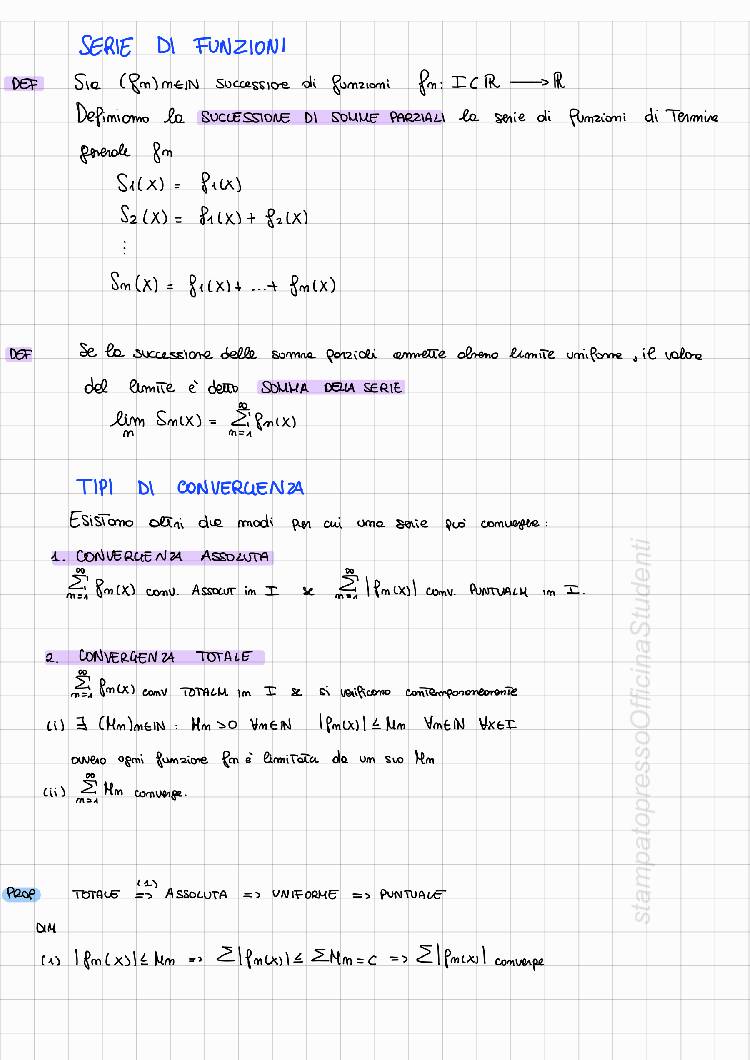 SERIE DI FUNZIONI
DEF Sia (fn)n∈IN successione di funzioni fn: I⊂ℝ ⟶ ℝ
Definiamo la SUCCESSIONE DI SOMME PARZIALI la serie di funzioni di Termine
generale fn
S1(x) = f1(x)
S2(x) = f1(x) + f2(x)
⋮
Sn(x) = f1(x)+ ...+ fn(x)
DEF Se la successione delle somme parziali ammette almeno limite uniforme, il valore
del limite è detto SOMMA DELLA SERIE
lim n Sn(x) = ∑ n=1 ∞ fn(x)
TIPI DI CONVERGENZA
Esistono altri due modi per cui una serie può convergere:
1. CONVERGENZA ASSOLUTA
∑ n=1 ∞ fn(x) conv. ASSOLUT in I se ∑ n=1 ∞ |fn(x)| conv. PUNTUALM in I.
2. CONVERGENZA TOTALE
∑ n=1 ∞ fn(x) conv TOTALM in I se si verificano contemporaneamente
(i) ∃ (Mn)n∈IN : Mn>0 ∀n∈IN |fn(x)| ≤ Mn ∀n∈IN ∀x∈I
ovvero ogni funzione fn è limitata da un suo Mn
(ii) ∑ n=1 ∞ Mn converge.
PROP TOTALE (1) => ASSOLUTA => UNIFORME => PUNTUALE
DIM
(1) |fn(x)| ≤ Mn => ∑|fn(x)| ≤ ∑Mn = C => ∑|fn(x)| converge
stampatopressoOfficinaStudenti